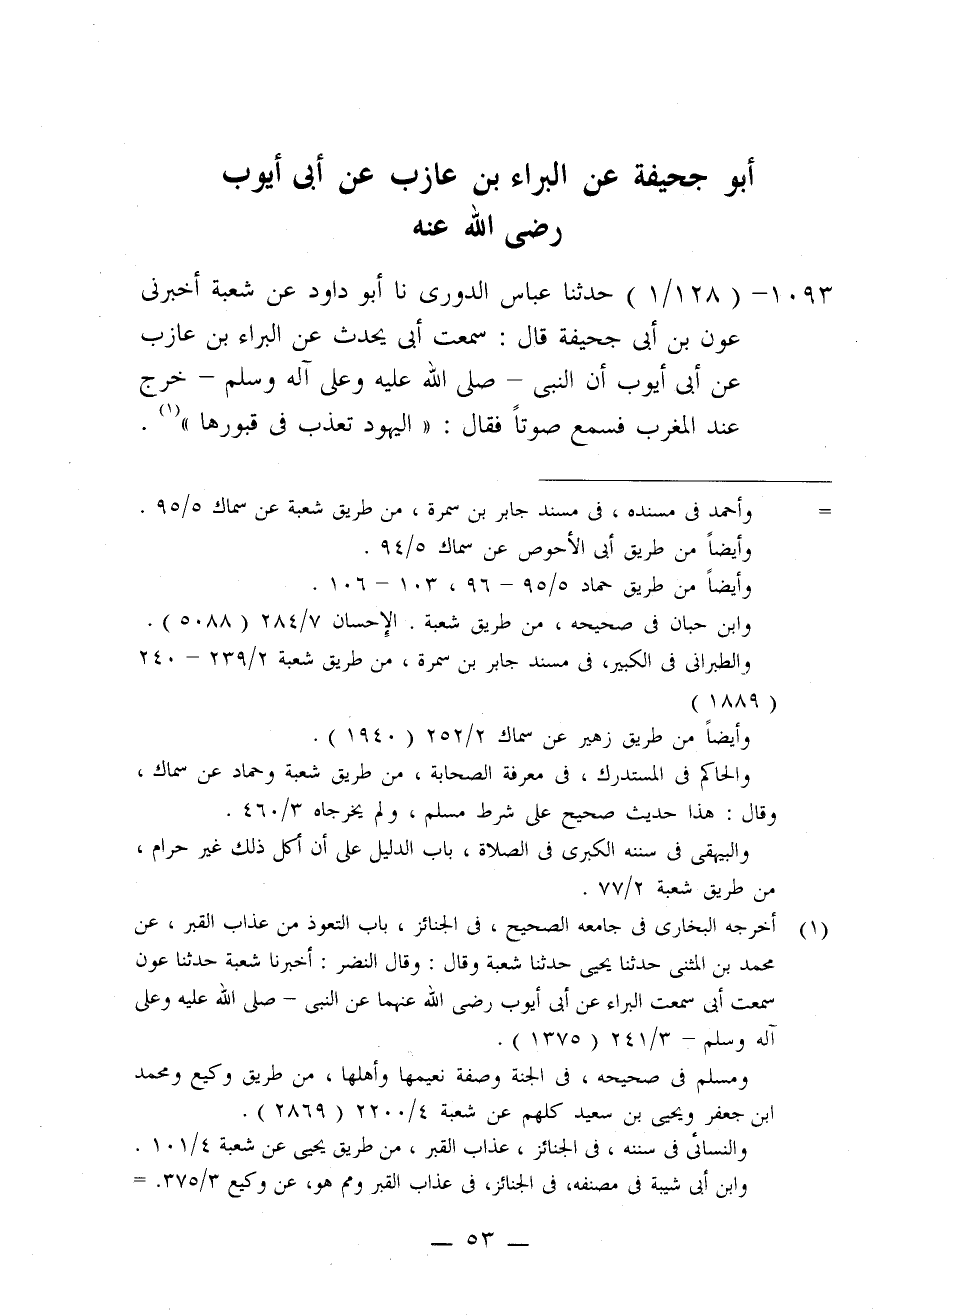 أبو جحيفة عن البراء بن عازب عن أبى أيوب
رضى الله عنه
١٠٩٣- ( ١/١٢٨ ) حدثنا عباس الدورى نا أبو داود عن شعبة أخبرنى
عون بن أبى جحيفة قال : سمعت أبى يحدث عن البراء بن عازب
عن أبى أيوب أن النبى – صلى الله عليه وعلى آله وسلم – خرج
عند المغرب فسمع صوتاً فقال : « اليهود تعذب فى قبورها »(١) .
= وأحمد فى مسنده ، فى مسند جابر بن سمرة ، من طريق شعبة عن سماك ٩٥/٥ .
وأيضاً من طريق أبى الأحوص عن سماك ٩٤/٥ .
وأيضاً من طريق حماد ٩٥/٥ – ٩٦ ، ١٠٣ – ١٠٦ .
وابن حبان فى صحيحه ، من طريق شعبة . الإحسان ٢٨٤/٧ ( ٥٠٨٨ ) .
والطبرانى فى الكبير، فى مسند جابر بن سمرة ، من طريق شعبة ٢٣٩/٢ – ٢٤٠
( ١٨٨٩ )
وأيضاً من طريق زهير عن سماك ٢٥٢/٢ ( ١٩٤٠ ) .
والحاكم فى المستدرك ، فى معرفة الصحابة ، من طريق شعبة وحماد عن سماك ،
وقال : هذا حديث صحيح على شرط مسلم ، ولم يخرجاه ٤٦٠/٣ .
والبيهقى فى سننه الكبرى فى الصلاة ، باب الدليل على أن أكل ذلك غير حرام ،
من طريق شعبة ٧٧/٢ .
(١) أخرجه البخارى فى جامعه الصحيح ، فى الجنائز ، باب التعوذ من عذاب القبر ، عن
محمد بن المثنى حدثنا يحيى حدثنا شعبة وقال : وقال النضر : أخبرنا شعبة حدثنا عون
سمعت أبى سمعت البراء عن أبى أيوب رضى الله عنهما عن النبى – صلى الله عليه وعلى
آله وسلم – ٢٤١/٣ ( ١٣٧٥ ) .
ومسلم فى صحيحه ، فى الجنة وصفة نعيمها وأهلها ، من طريق وكيع ومحمد
ابن جعفر ويحيى بن سعيد كلهم عن شعبة ٢٢٠٠/٤ ( ٢٨٦٩ ) .
والنسائى فى سننه ، فى الجنائز ، عذاب القبر ، من طريق يحيى عن شعبة ١٠١/٤ .
وابن أبى شيبة فى مصنفه، فى الجنائز، فى عذاب القبر ومم هو، عن وكيع ٣٧٥/٣. =
— ٥٣ —